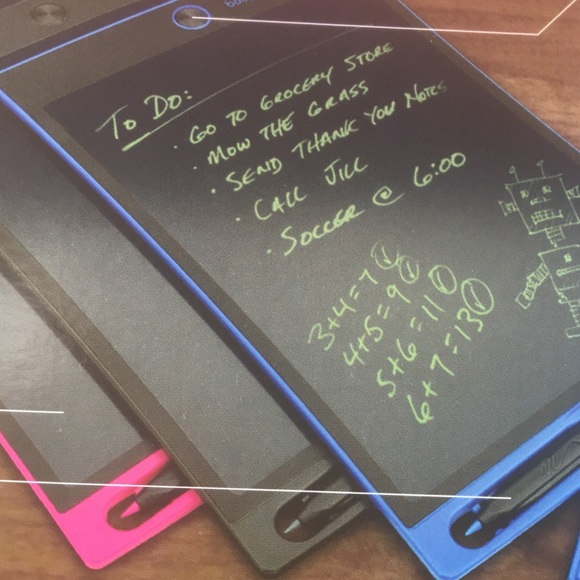 To Do:
· Go to Grocery Store
· Mow the Grass
· Send Thank You Notes
· Call Jill
· Soccer @ 6:00
3+4=7
4+5=9
5+6=11
6+7=13